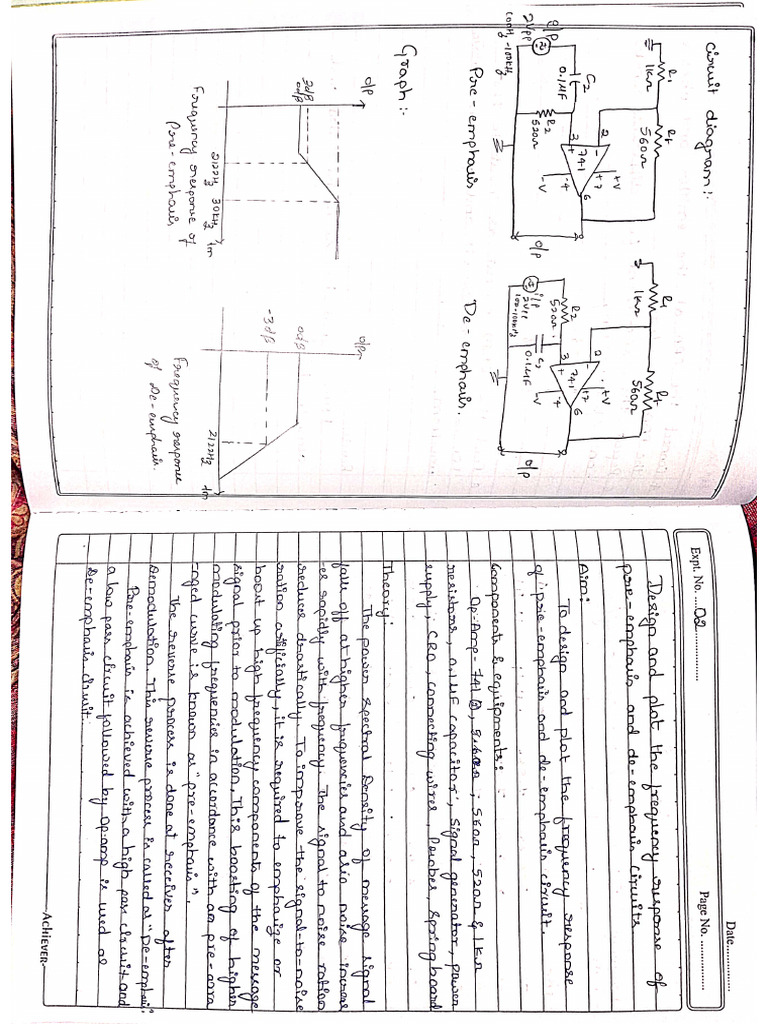 Circuit diagram:-
R1
1KΩ
Rf
560Ω
+V
2
-
+7
741
6
3
+
-4
-V
C2
0.1MF
R2
520Ω
I/P
2Vpp
100Hz-100KHz
O/P
Pre-emphasis
R1
1KΩ
Rf
560Ω
+V
2
-
741
6
3
+
-4
-V
R2
520Ω
0.1MF
I/P
2Vpp
100-100KHz
O/P
De-emphasis.
Graph:-
O/P
3dB
0dB
2122Hz 30KHz fm
Frequency response of
Pre-emphasis
0dB
-3dB
2122Hz fm
Frequency response
of De-emphasis.
Date
Expt. No. 02
Page No.
Design and plot the frequency response of
pre-emphasis and de-emphasis circuits
Aim:
To design and plot the frequency response
of pre-emphasis and de-emphasis circuit.
Components & equipments:
Op-Amp-741, 560Ω, 520Ω & 1KΩ
resistors, 0.1MF capacitor, signal generator, power
supply, CRO, connecting wires, Probes, spring board
Theory:
The power spectral Density of message signal
falls off at higher frequencies and also noise increas
-es rapidly with frequency. The signal to noise ration
reduces drastically. To improve the signal-to-noise
ration artificially, it is required to emphasize or
boost up high frequency components of the message
signal prior to modulation. This boosting of higher
modulating frequencies in accordance with an pre-arra
-nged curve is known as "pre-emphasis".
The reverse process is done at receiver after
Demodulation. This reverse process is called as "De-emphasis"
Pre-emphasis is achieved with a high pass circuit and
a low pass circuit followed by Op-amp is used as
De-emphasis circuit.
ACHIEVER